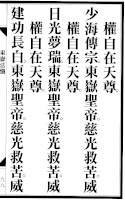 權自在天尊
少海傳宗東嶽聖帝。慈光救苦威
權自在天尊
日光夢瑞東嶽聖帝。慈光救苦威
權自在天尊
建功長白東嶽聖帝。慈光救苦威